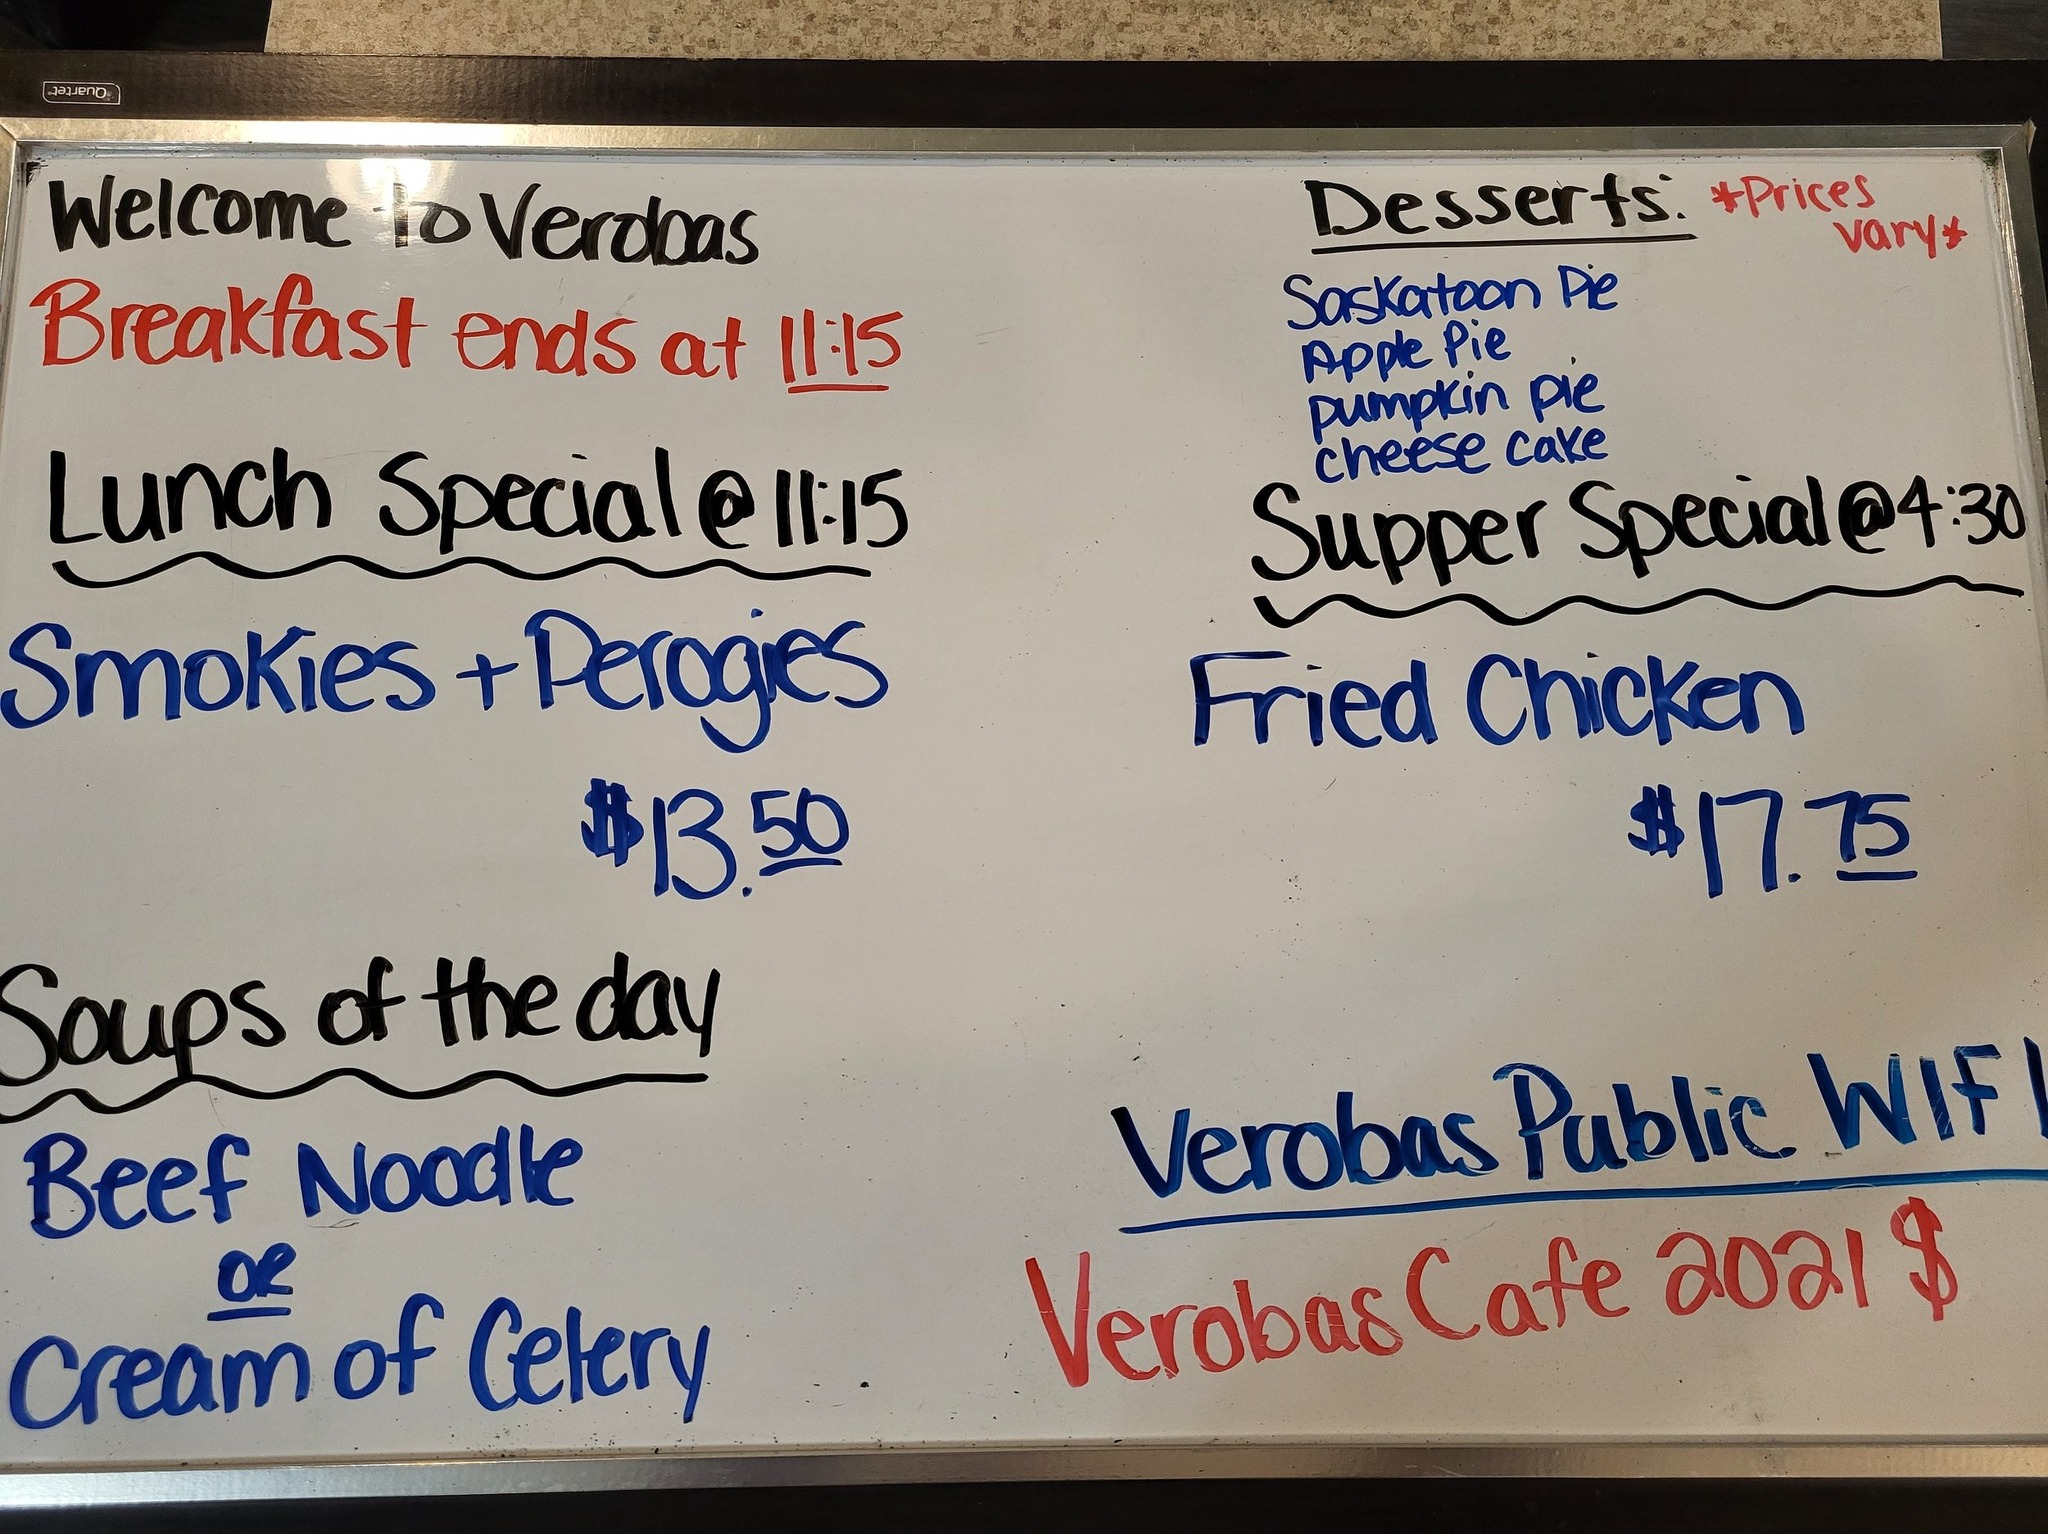 Quartet
Welcome to Verobas
Breakfast ends at 11:15
Lunch Special @ 11:15
Smokies + Perogies
$13.50
Soups of the day
Beef Noodle
or
Cream of Celery
Desserts: *Prices
vary*
Saskatoon Pie
Apple Pie
pumpkin pie
cheese cake
Supper Special @ 4:30
Fried Chicken
$17.75
Verobas Public WIFI
Verobas Cafe 2021 $